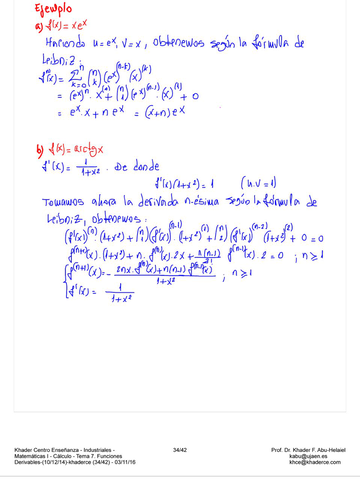 Ejemplo
a) f(x) = xeˣ
Haciendo u = eˣ, v = x, obtenemos según la fórmula de
Leibniz:
f⁽ⁿ⁾(x) = Σₖ₌₀ⁿ (n k) (eˣ)⁽ⁿ⁻ᵏ⁾ (x)⁽ᵏ⁾
= (eˣ)ⁿ · x⁽⁰⁾ + (n 1) (eˣ)⁽ⁿ⁻¹⁾ · (x)⁽¹⁾ + 0
= eˣ · x + n eˣ = (x+n) eˣ
b) f(x) = arctgx
f'(x) = 1/(1+x²) . De donde
f'(x)(1+x²) = 1 (u.v = 1)
Tomamos ahora la derivada n-ésima según la fórmula de
Leibniz, obtenemos:
(f'(x))⁽ⁿ⁾ · (1+x²) + (n 1) (f'(x))⁽ⁿ⁻¹⁾ · (1+x²)⁽¹⁾ + (n 2) (f'(x))⁽ⁿ⁻²⁾ (1+x²)⁽²⁾ + 0 = 0
f⁽ⁿ⁺¹⁾(x) · (1+x²) + n · f⁽ⁿ⁾(x) · 2x + n(n-1)/2 f⁽ⁿ⁻¹⁾(x) · 2 = 0 ; n ≥ 1
f⁽ⁿ⁺¹⁾(x) = - (2nx · f⁽ⁿ⁾(x) + n(n-1) f⁽ⁿ⁻¹⁾(x))/(1+x²) ; n ≥ 1
f'(x) = 1/(1+x²)
Khader Centro Enseñanza - Industriales - 34/42 Prof. Dr. Khader F. Abu-Helaiel
Matemáticas I - Cálculo - Tema 7. Funciones kabu@ujaen.es
Derivables-(10/12/14)-khadere (34/42) - 03/11/16 khce@khaderce.com